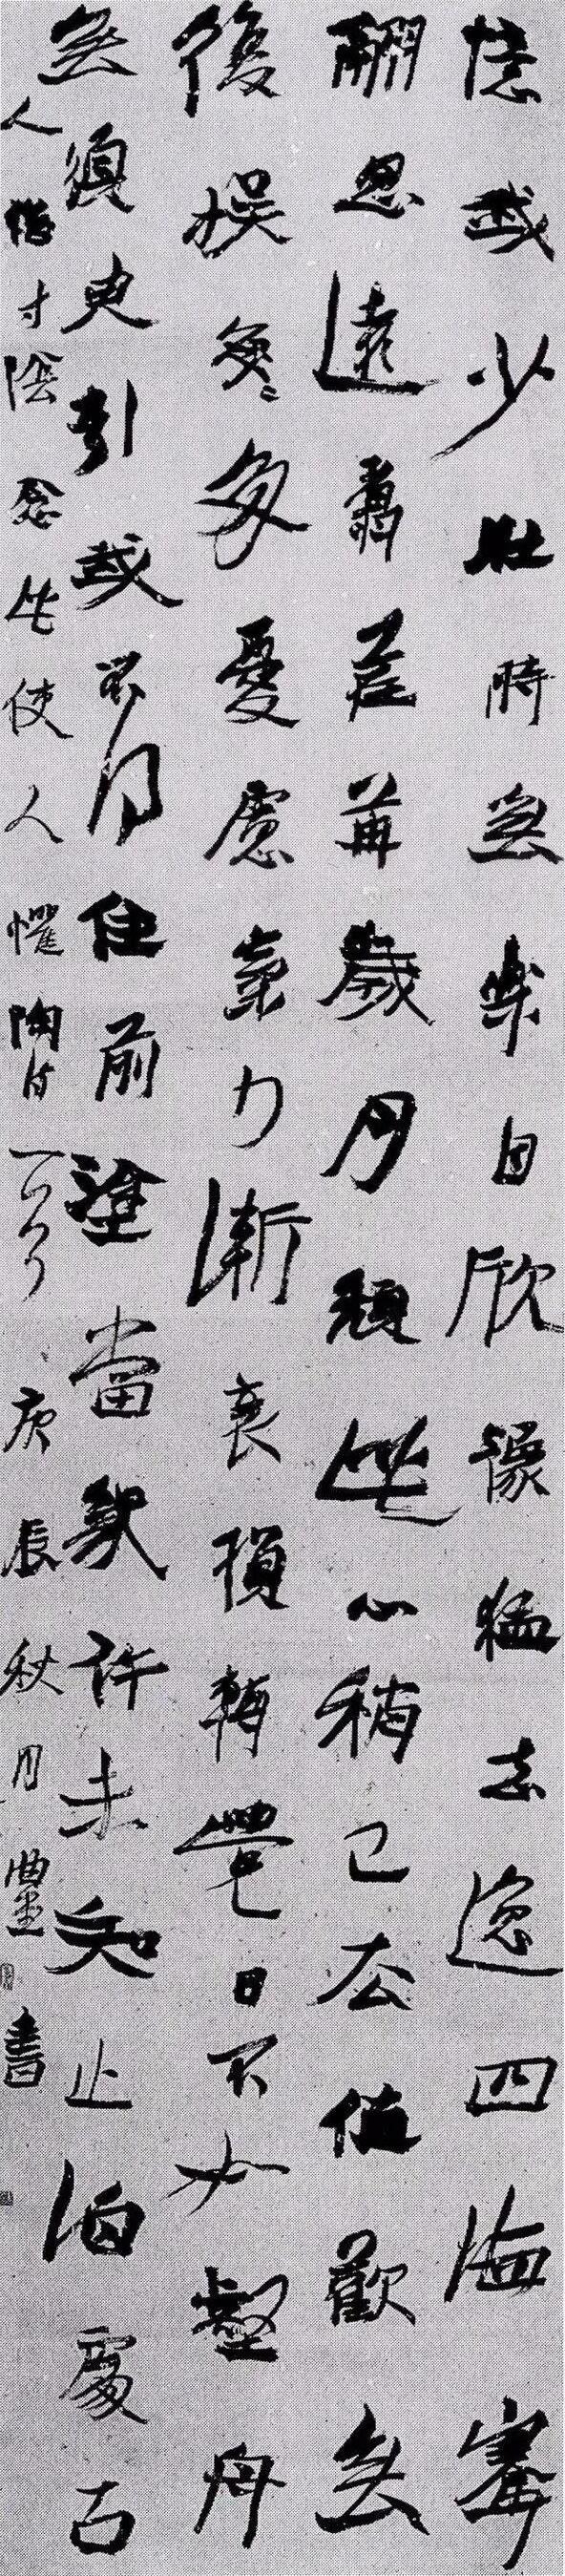 憶我少壯時無樂自欣豫猛志逸四海騫
翮思遠翥荏苒歲月頹此心稍已去值歡無
復娛每々多憂慮氣力漸衰損轉覺日不如壑舟
無須臾引我不得住前塗當幾許未知止泊處古
人惜寸陰念此使人懼陶詩一首庚辰秋月書